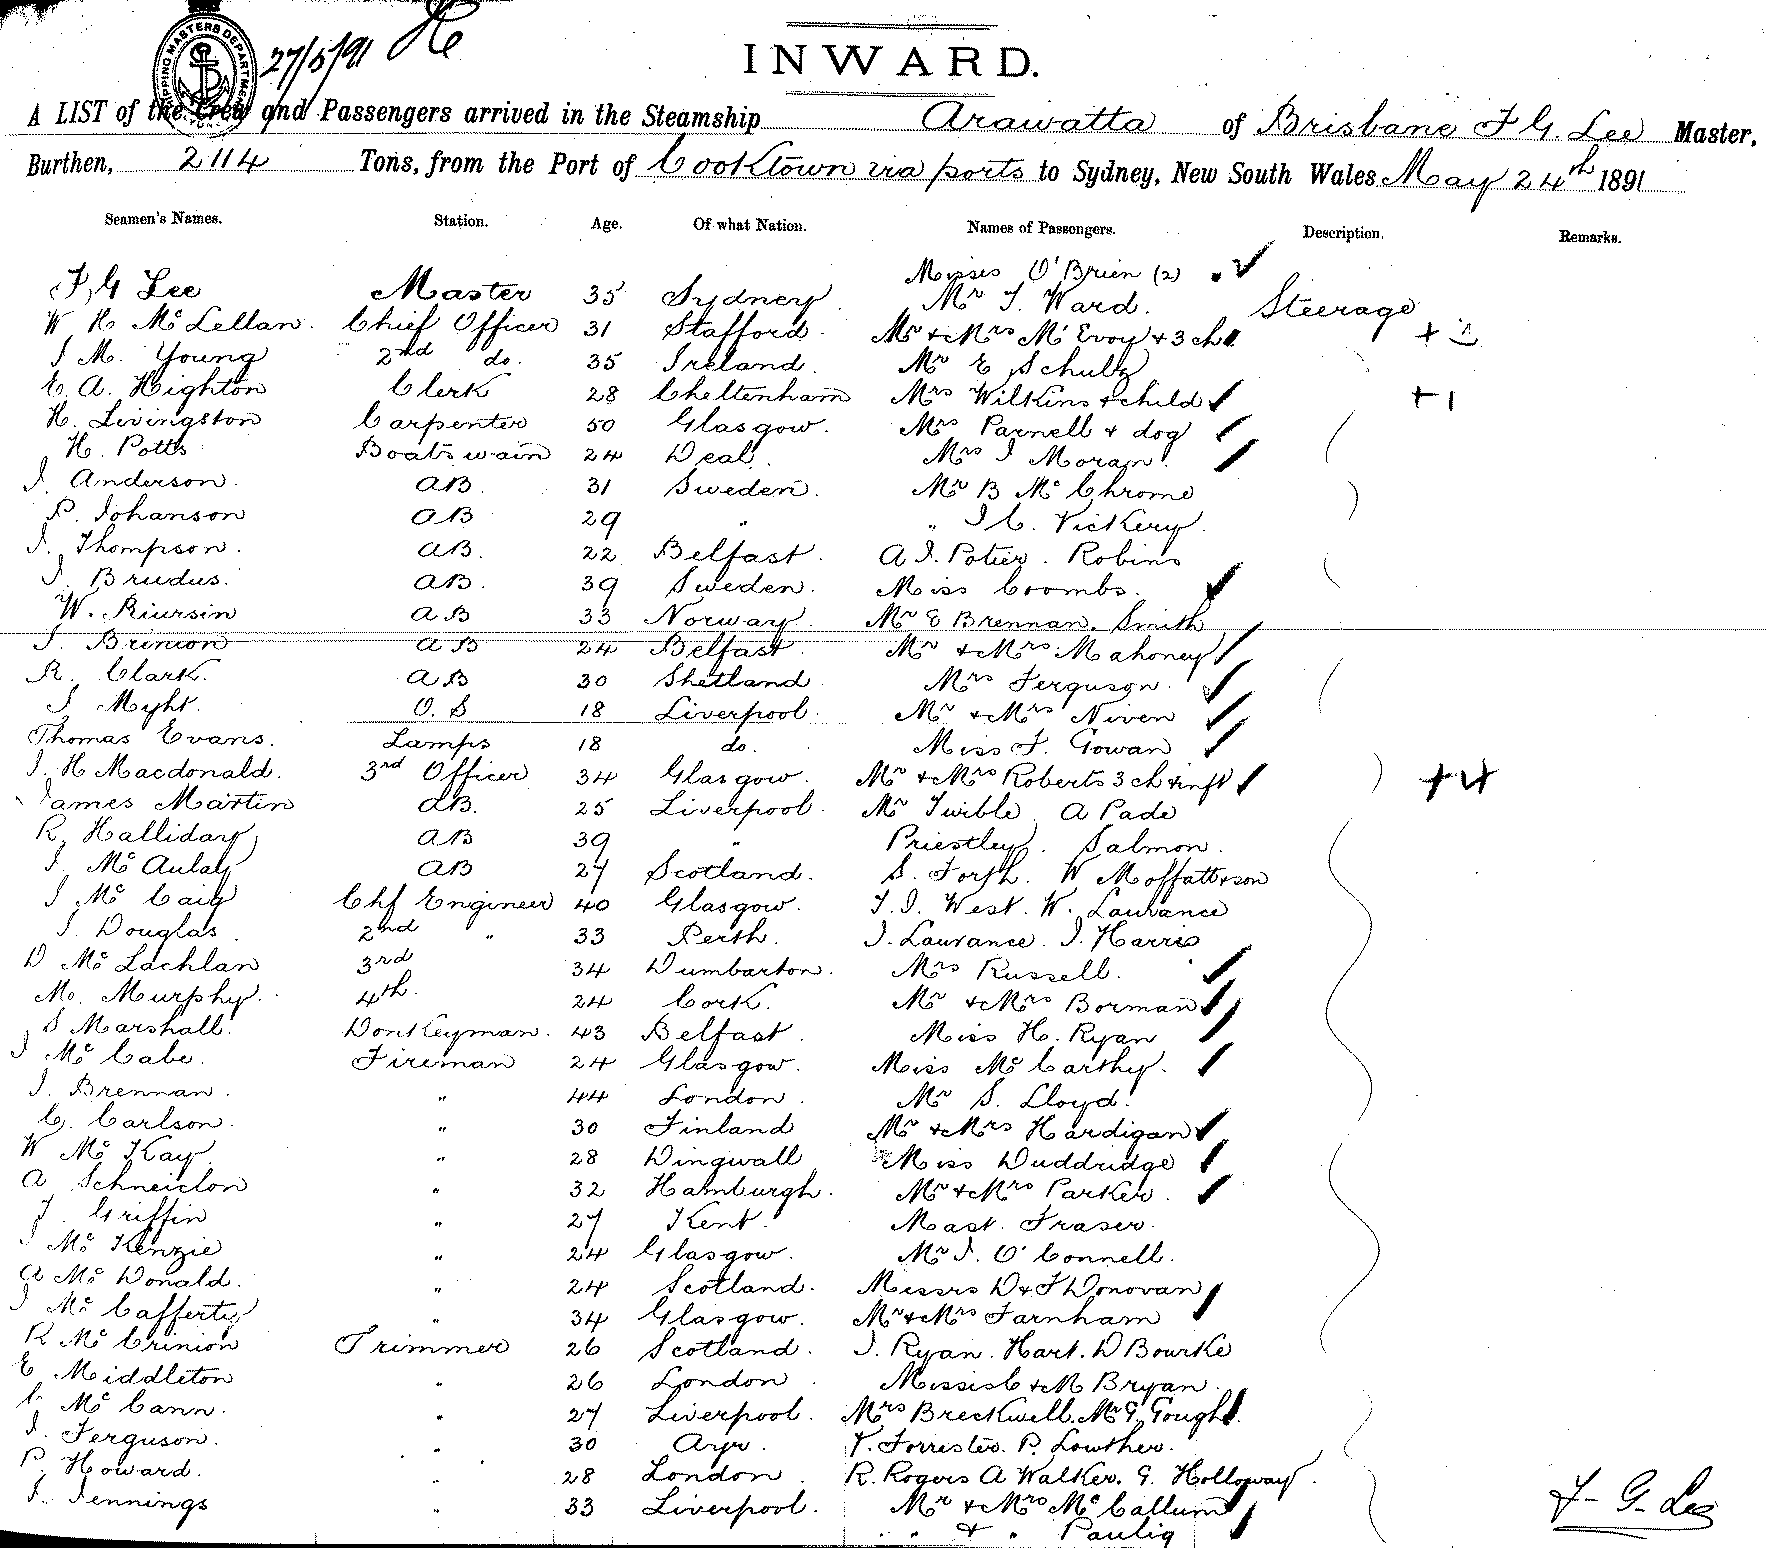 27/5/91
INWARD.
A LIST of the Crew and Passengers arrived in the Steamship Arawatta of Brisbane F G. Lee Master,
Burthen, 2114 Tons, from the Port of Cooktown via ports to Sydney, New South Wales May 24th 1891
Seamen's Names. Station. Age. Of what Nation. Names of Passengers. Description. Remarks.
Misses O'Brien (2)
F G Lee Master 35 Sydney Mr J. Ward. Steerage
W H McLellan. Chief Officer 31 Stafford. Mr & Mrs McEvoy & 3 ch
J M. Young 2nd do. 35 Ireland. Mr E Schultz
E A. Highton Clerk 28 Cheltenham Mrs Wilkins & child +1
H. Livingston Carpenter 50 Glasgow. Mrs Parnell & dog
H. Potts Boatswain 24 Deal. Mrs J Moran.
J. Anderson. AB. 31 Sweden. Mr B McChrome
P. Johanson AB 29 " " J C. Vickery.
J. Thompson. AB. 22 Belfast. A J. Potier. Robins
J. Brudus. AB. 39 Sweden. Miss Coombs.
W. Riursin AB 33 Norway. Mr E Brennan. Smith
J. Brinion AB 24 Belfast. Mr & Mrs Mahoney
R. Clark. AB 30 Shetland. Mrs Ferguson.
J Myht. O.S 18 Liverpool. Mr & Mrs Niven
Thomas Evans. Lamps 18 do. Miss F. Gowan
J. H Macdonald. 3rd Officer 34 Glasgow. Mr & Mrs Roberts 3 ch & inft +4
James Martin AB. 25 Liverpool. Mr Twible A Pade
R. Halliday AB 39 " Priestley. Salmon.
J. McAulay AB 27 Scotland. S. Forsh. W Moffatt & son
J. McCaig Chf Engineer 40 Glasgow. T. J. West. W. Laurance
J. Douglas 2nd " 33 Perth. J. Laurance. J. Harris
D McLachlan 3rd 34 Dumbarton. Mrs Russell.
M. Murphy. 4th. 24 Cork. Mr & Mrs Borman
S Marshall. Donkeyman. 43 Belfast Miss H. Ryan
J McCabe. Fireman 24 Glasgow. Miss McCarthy.
J. Brennan. " 44 London. Mr S. Lloyd.
C. Carlson. " 30 Finland Mr & Mrs Hardigan
W McKay " 28 Dingwall Miss Duddridge
A Schneiclon " 32 Hamburgh. Mr & Mrs Parker.
J. Griffin " 27 Kent. Mast. Fraser.
J McKenzie " 24 Glasgow. Mr J. O'Connell.
A McDonald. " 24 Scotland. Messrs D & J Donovan
J McCafferty " 34 Glasgow. Mr & Mrs Farnham
R McCrinion Trimmer 26 Scotland. J. Ryan. Hart. D Bourke
E Middleton " 26 London Misses C & M Bryan.
C. McCann. " 27 Liverpool. Mrs Breckwell. Mr G. Gough.
J. Ferguson. " 30 Ayr. T. Forrester. P. Lowther.
P. Howard. " 28 London. R. Rogers A Walker. G. Holloway.
J. Jennings " 33 Liverpool. Mr & Mrs McCallum
" & " Paulig
F. G. Lee